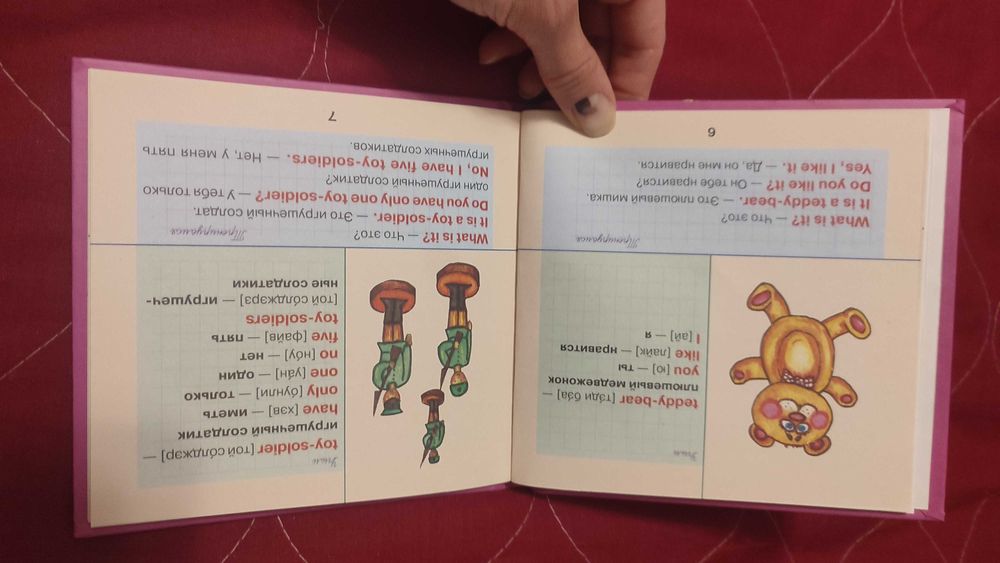 Учим
teddy-bear [тэ́ди бэ́а] —
плюшевый медвежонок
you [ю] — ты
like [лайк] — нравится
I [ай] — я
Тренируемся
What is it? — Что это?
It is a teddy-bear. — Это плюшевый мишка.
Do you like it? — Он тебе нравится?
Yes, I like it. — Да, он мне нравится.
6
Учим
toy-soldier [той со́лджэр] —
игрушечный солдатик
have [хэв] — иметь
only [о́унли] — только
one [уа́н] — один
no [но́у] — нет
five [файв] — пять
toy-soldiers
[той со́лджэрз] — игрушеч-
ные солдатики
Тренируемся
What is it? — Что это?
It is a toy-soldier. — Это игрушечный солдат.
Do you have only one toy-soldier? — У тебя только
один игрушечный солдатик?
No, I have five toy-soldiers. — Нет, у меня пять
игрушечных солдатиков.
7